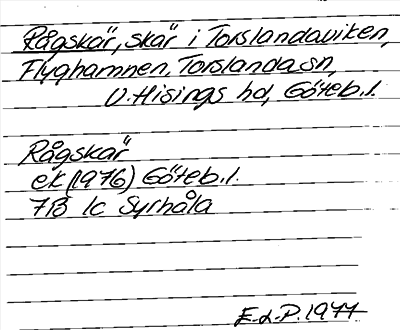 Rågskär, skär i Torslandaviken,
Flyghamnen, Torslanda sn,
V. Hisings hd, Göteb. l.
Rågskär
ek (1976) Göteb. l.
7B 1c Syrhåla
E.L.P. 1977